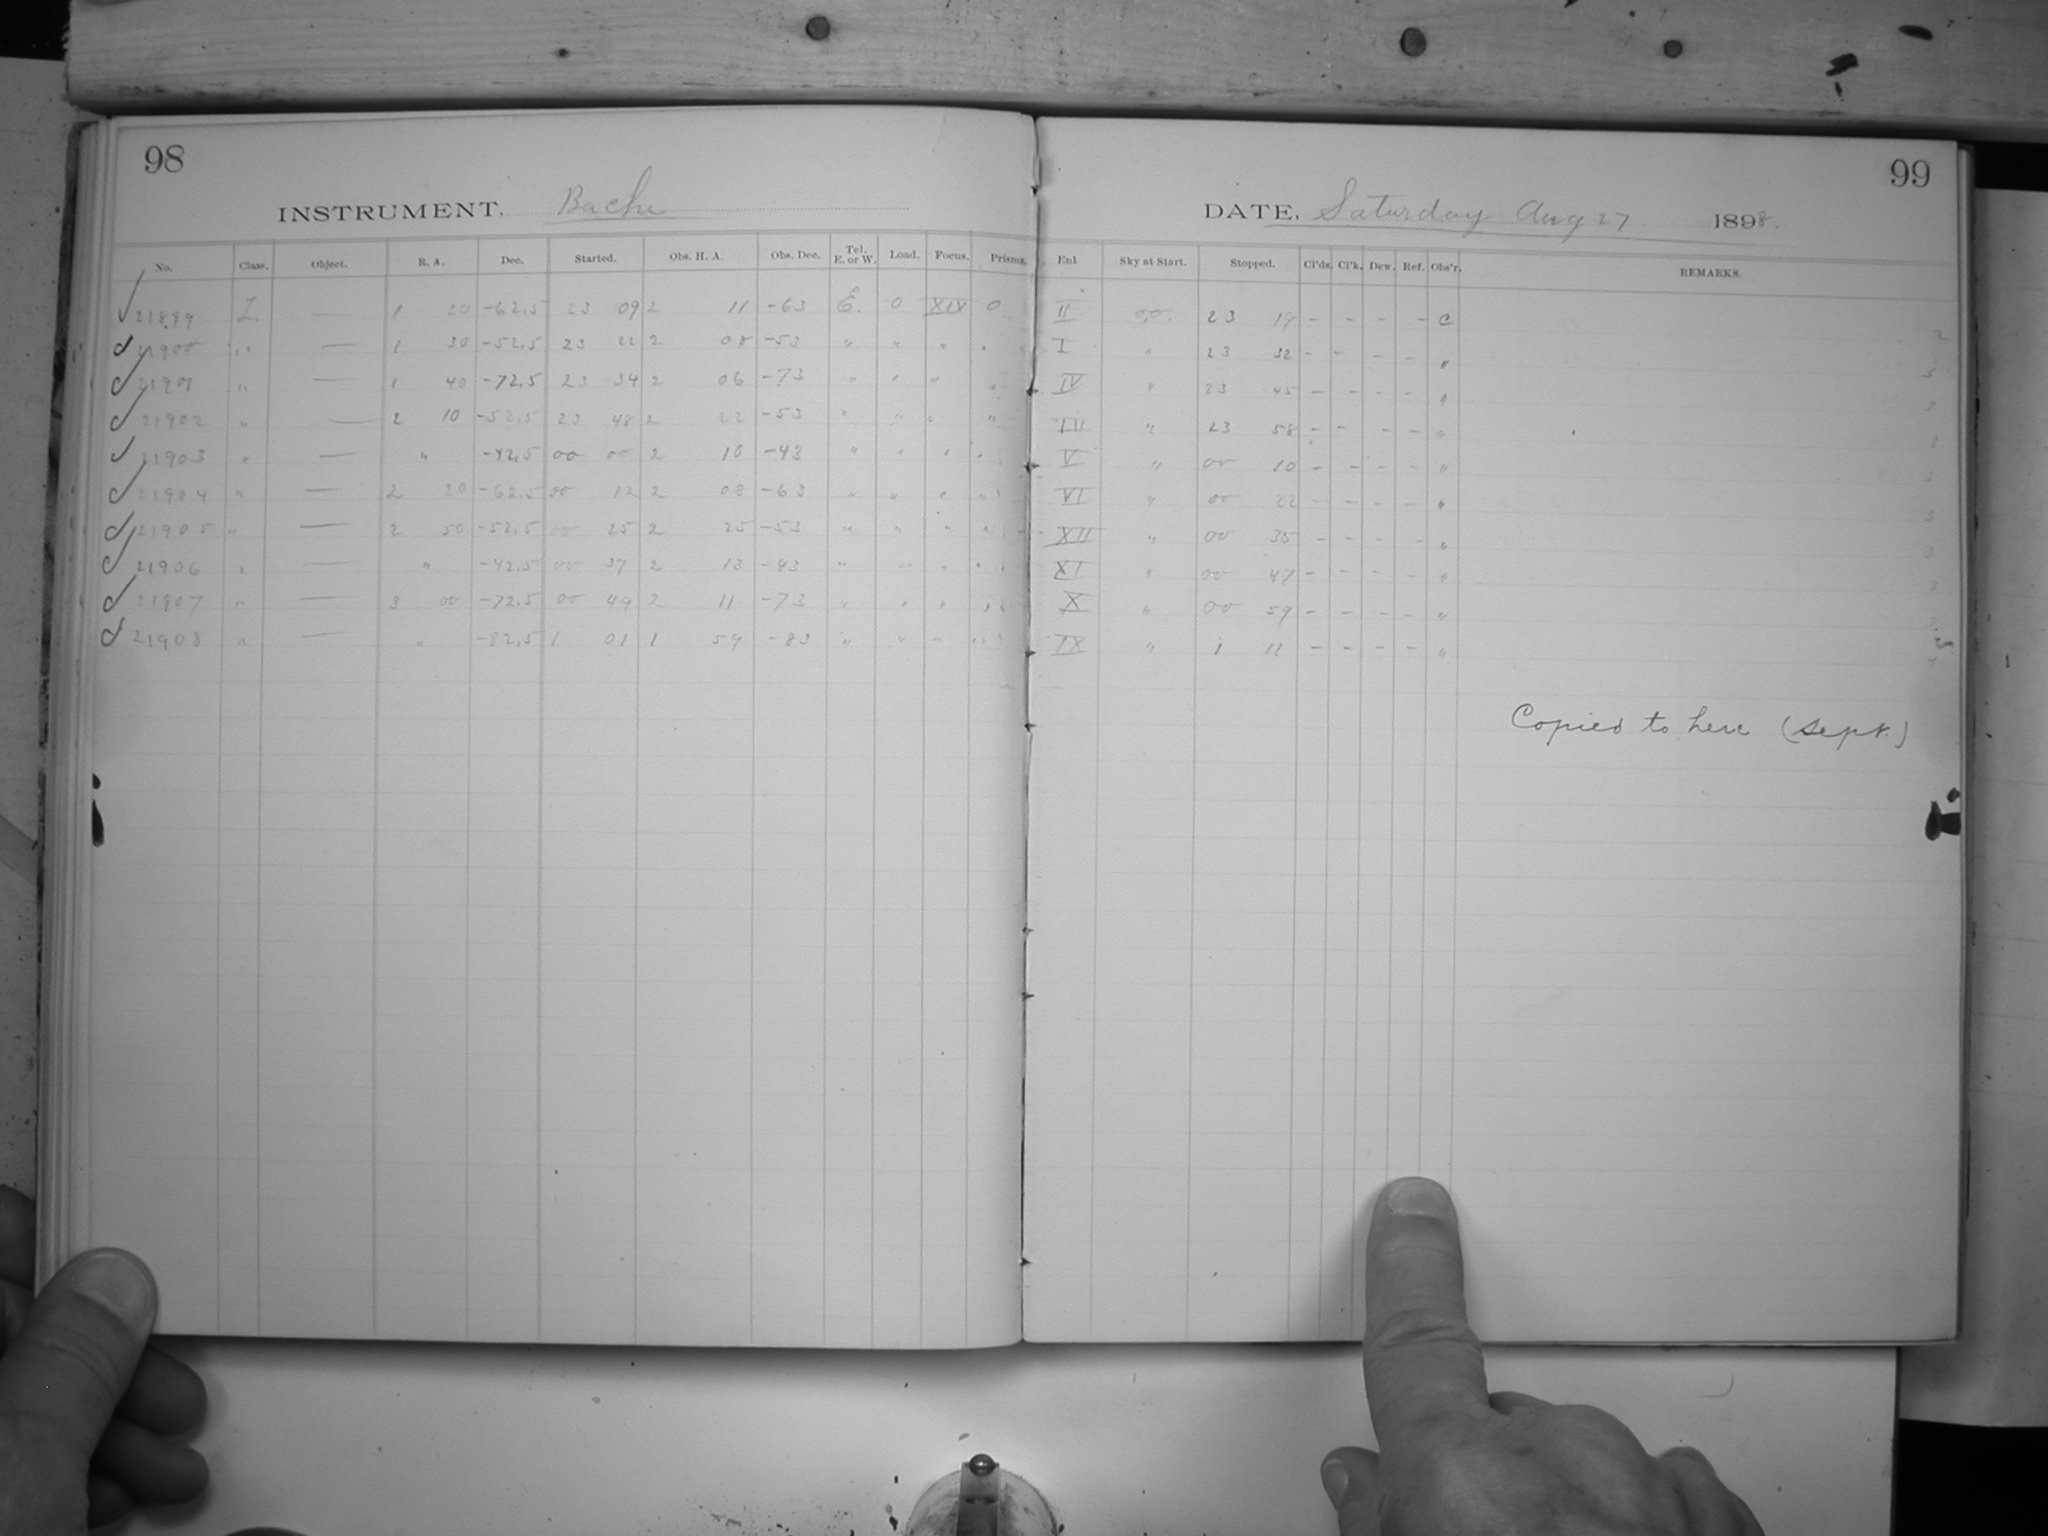 98
INSTRUMENT. Bache
No. Class. Object. R. A. Dec. Started. Obs. H. A. Obs. Dec. Tel. E. or W. Load. Focus. Prisms.
21899 L. — 1 20 -62.5 23 09 2 11 -63 E. 0 XIV 0
21900 " — 1 30 -52.5 23 22 2 08 -53 " " " "
21901 " — 1 40 -72.5 23 34 2 06 -73 " " " "
21902 " — 2 10 -52.5 23 48 2 22 -53 " " " "
21903 " — " -42.5 00 00 2 10 -43 " " " "
21904 " — 2 20 -62.5 00 12 2 08 -63 " " " "
21905 " — 2 50 -52.5 00 25 2 25 -53 " " " "
21906 " — " -42.5 00 37 2 13 -43 " " " "
21907 " — 3 00 -72.5 00 49 2 11 -73 " " " "
21908 " — " -82.5 1 01 1 59 -83 " " " "
99
DATE, Saturday Aug 27 1898.
Enl Sky at Start. Stopped. Cl'ds. Cl'k. Dew. Ref. Obs'r. REMARKS.
II 23 19 - - - - C
I " 23 32 - - - - "
IV " 23 45 - - - - "
III " 23 58 - - - - "
V " 00 10 - - - - "
VI " 00 22 - - - - "
XII " 00 35 - - - - "
XI " 00 47 - - - - "
X " 00 59 - - - - "
IX " 1 11 - - - - "
Copied to here (Sept.)